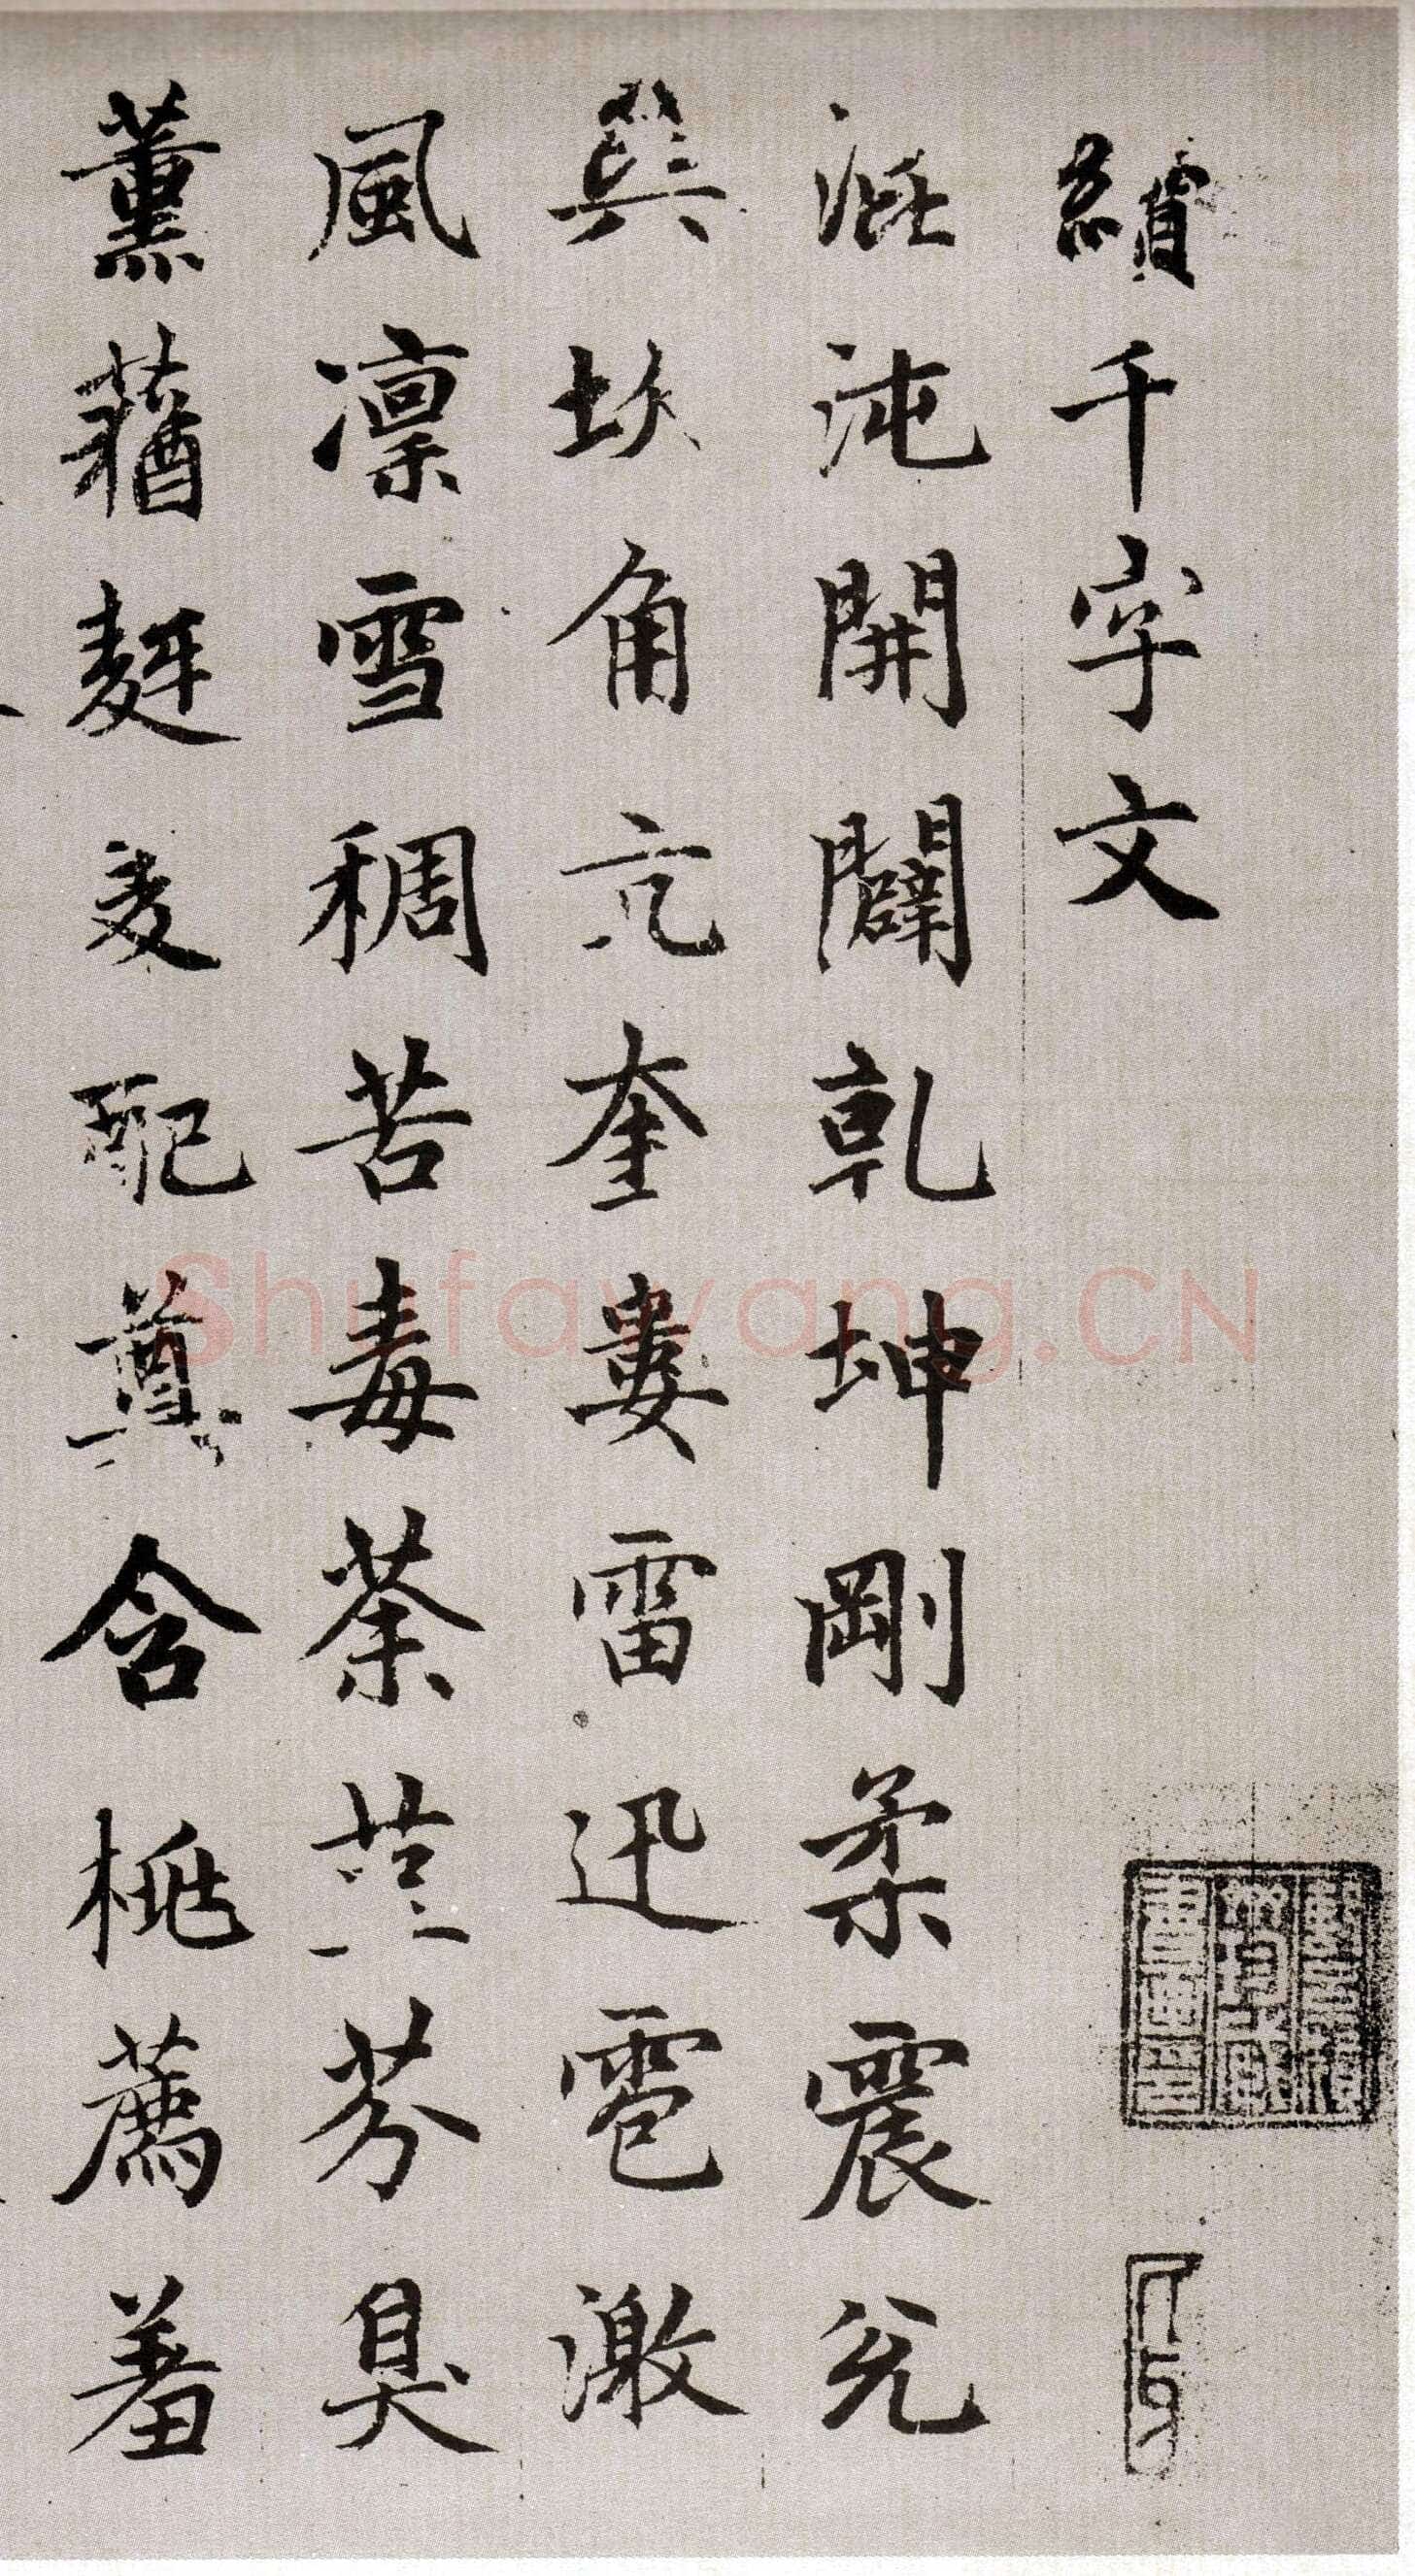 續千字文
混沌開闢乾坤剛柔震兌
巽坎角亢奎婁雷迅雹激
風凜雪稠苦毒荼芬臭
薰蕕麰麥配奠含桃薦羞
Shufawang.CN